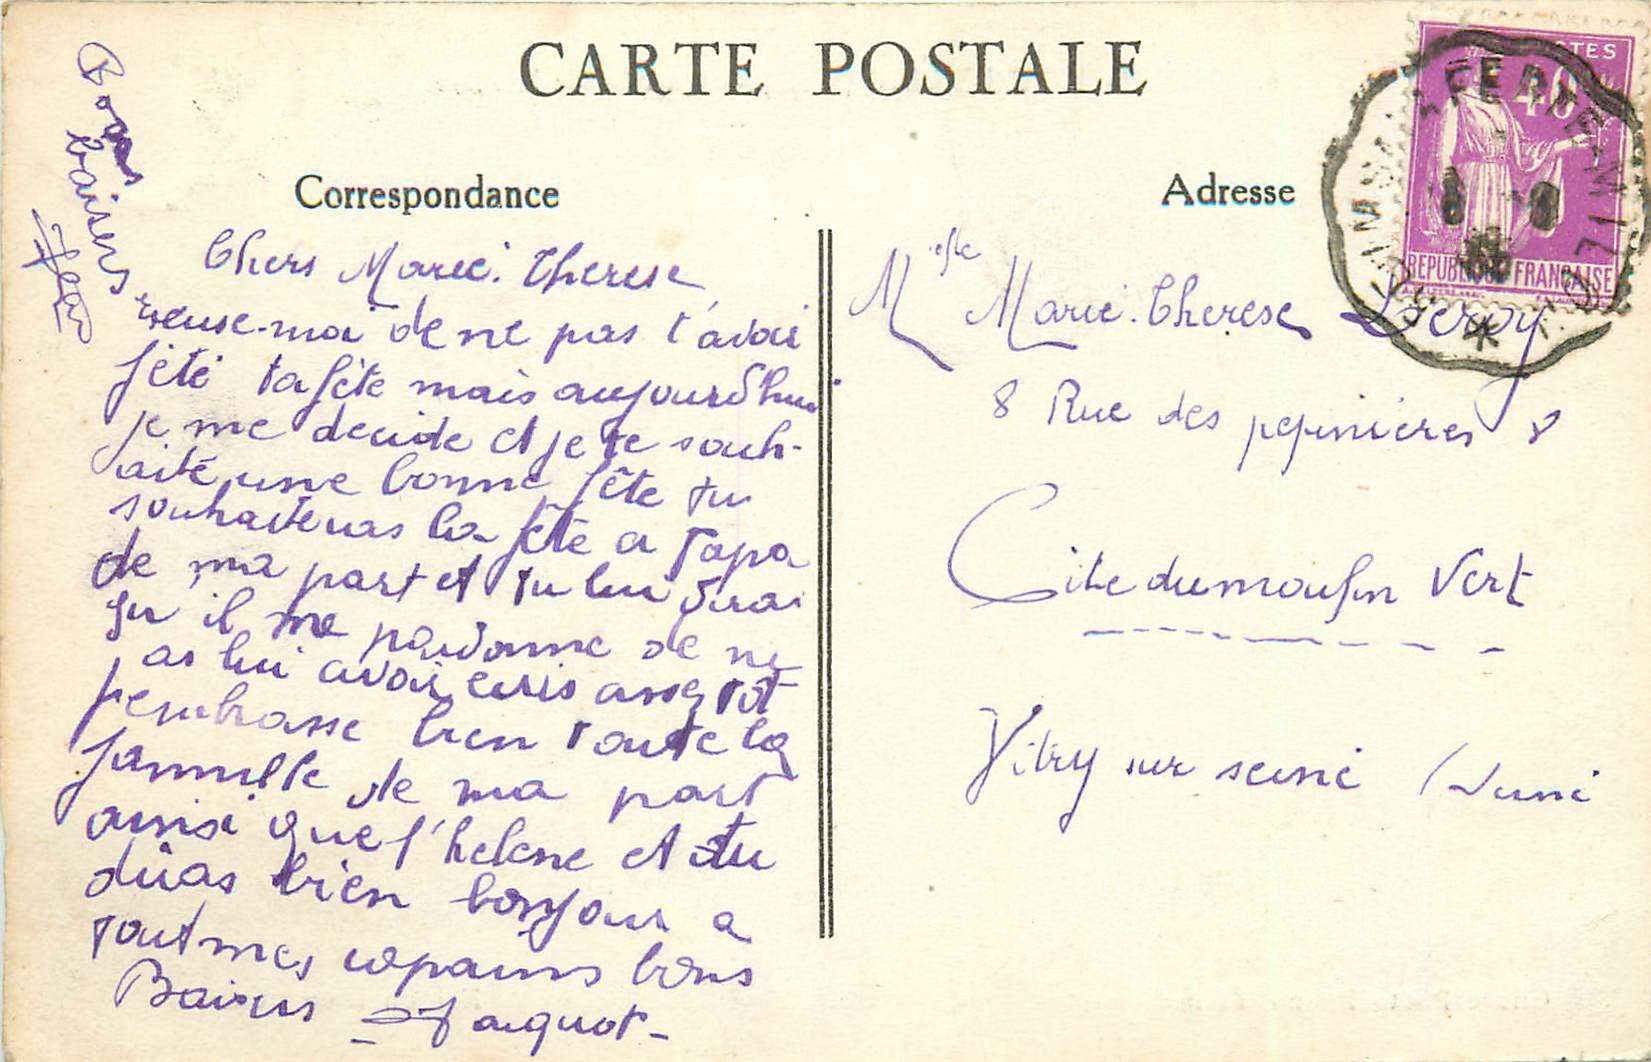 CARTE POSTALE
Correspondance
Adresse
POSTES
40
REPUBLIQUE FRANÇAISE
LA FERTE-MIL
Bons
baisers
Chers Marie. Therese
excuse-moi de ne pas t'avoir
fêté ta fête mais aujourd'hui
je me decide et je te souh-
aite une bonne fête tu
souhaiteras la fête a Papa
de ma part et tu lui diras
qu il me pardonne de ne
pas lui avoir ecris assez tôt
j'embrasse bien toute la
famille de ma part
ainsi que l'helene et tu
diras bien bonjour a
tout mes copains bons
Baisers Jacquot
Melle Marie. Therese Leroy
8 Rue des pepinieres 8
Cite du moulin Vert
Vitry sur seine (Seine